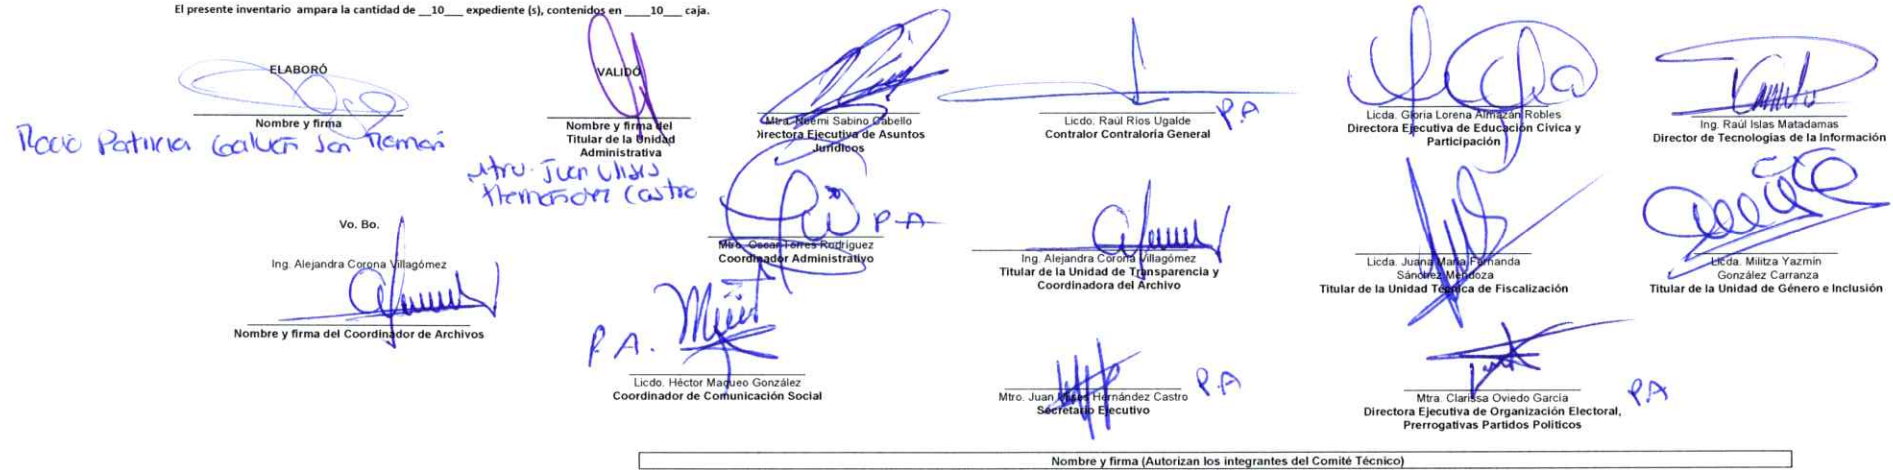 El presente inventario ampara la cantidad de __10___ expediente (s), contenidos en ____10___ caja.
ELABORÓ
Nombre y firma
Rocio Patricia Galvan San Roman
VALIDÓ
Nombre y firma del
Titular de la Unidad
Administrativa
Mtro. Juan Ulises
Hernandez Castro
Mtra. Noemi Sabino Cabello
Directora Ejecutiva de Asuntos
Jurídicos
Licdo. Raúl Ríos Ugalde
Contralor Contraloría General
P.A
Licda. Gloria Lorena Almazán Robles
Directora Ejecutiva de Educación Cívica y
Participación
Ing. Raúl Islas Matadamas
Director de Tecnologías de la Información
Vo. Bo.
Ing. Alejandra Corona Villagómez
Nombre y firma del Coordinador de Archivos
P.A
Mtro. Oscar Torres Rodríguez
Coordinador Administrativo
Ing. Alejandra Corona Villagómez
Titular de la Unidad de Transparencia y
Coordinadora del Archivo
Licda. Juana María Fernanda
Sánchez Mendoza
Titular de la Unidad Técnica de Fiscalización
Licda. Militza Yazmín
González Carranza
Titular de la Unidad de Género e Inclusión
P.A.
Licdo. Héctor Maqueo González
Coordinador de Comunicación Social
Mtro. Juan Ulises Hernández Castro
Secretario Ejecutivo
P.A
Mtra. Clarissa Oviedo García
Directora Ejecutiva de Organización Electoral,
Prerrogativas Partidos Políticos
P.A
Nombre y firma (Autorizan los integrantes del Comité Técnico)